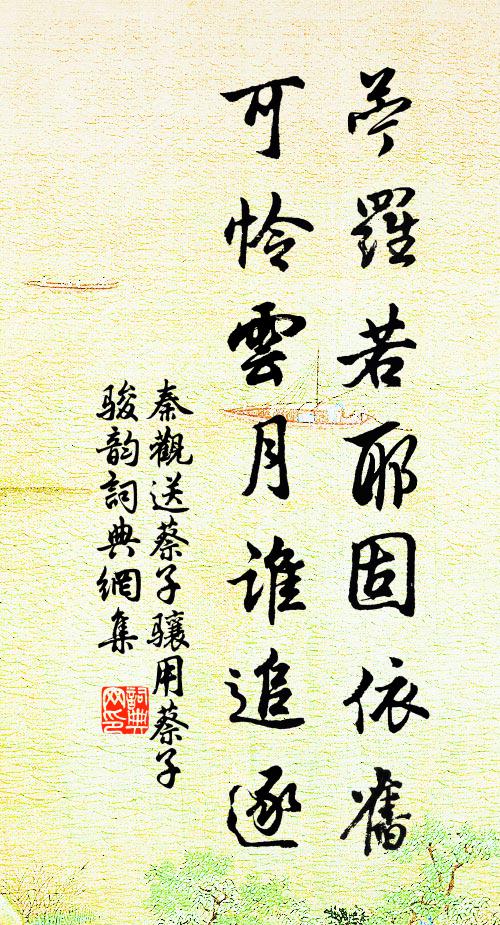 苧羅若耶固依舊
可憐雲月誰追逐
秦觀送蔡子驤用蔡子
駿韵詞典網集
詞典
网印